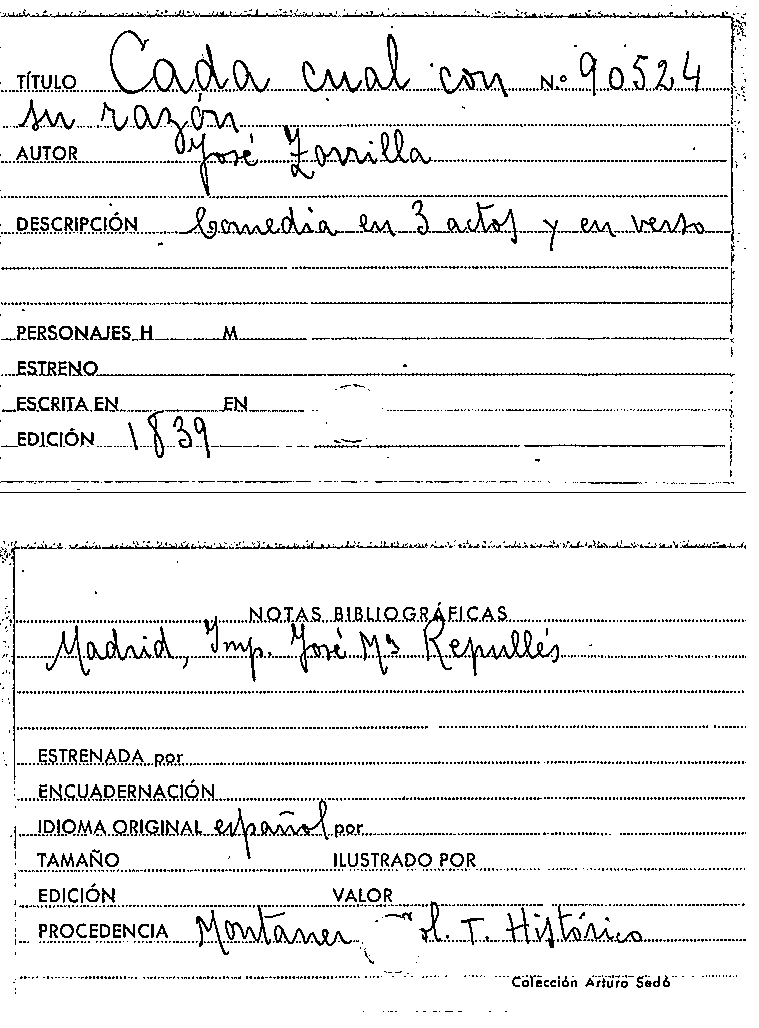 TÍTULO Cada cual con N.º 90524
su razón
AUTOR José Zorrilla
DESCRIPCIÓN Comedia en 3 actos y en verso
PERSONAJES H M
ESTRENO
ESCRITA EN EN
EDICIÓN 1839
NOTAS BIBLIOGRÁFICAS
Madrid, Imp. José Mª Repullés
ESTRENADA por
ENCUADERNACIÓN
IDIOMA ORIGINAL español por
TAMAÑO ILUSTRADO POR
EDICIÓN VALOR
PROCEDENCIA Montaner T. Histórico
Colección Arturo Sedó